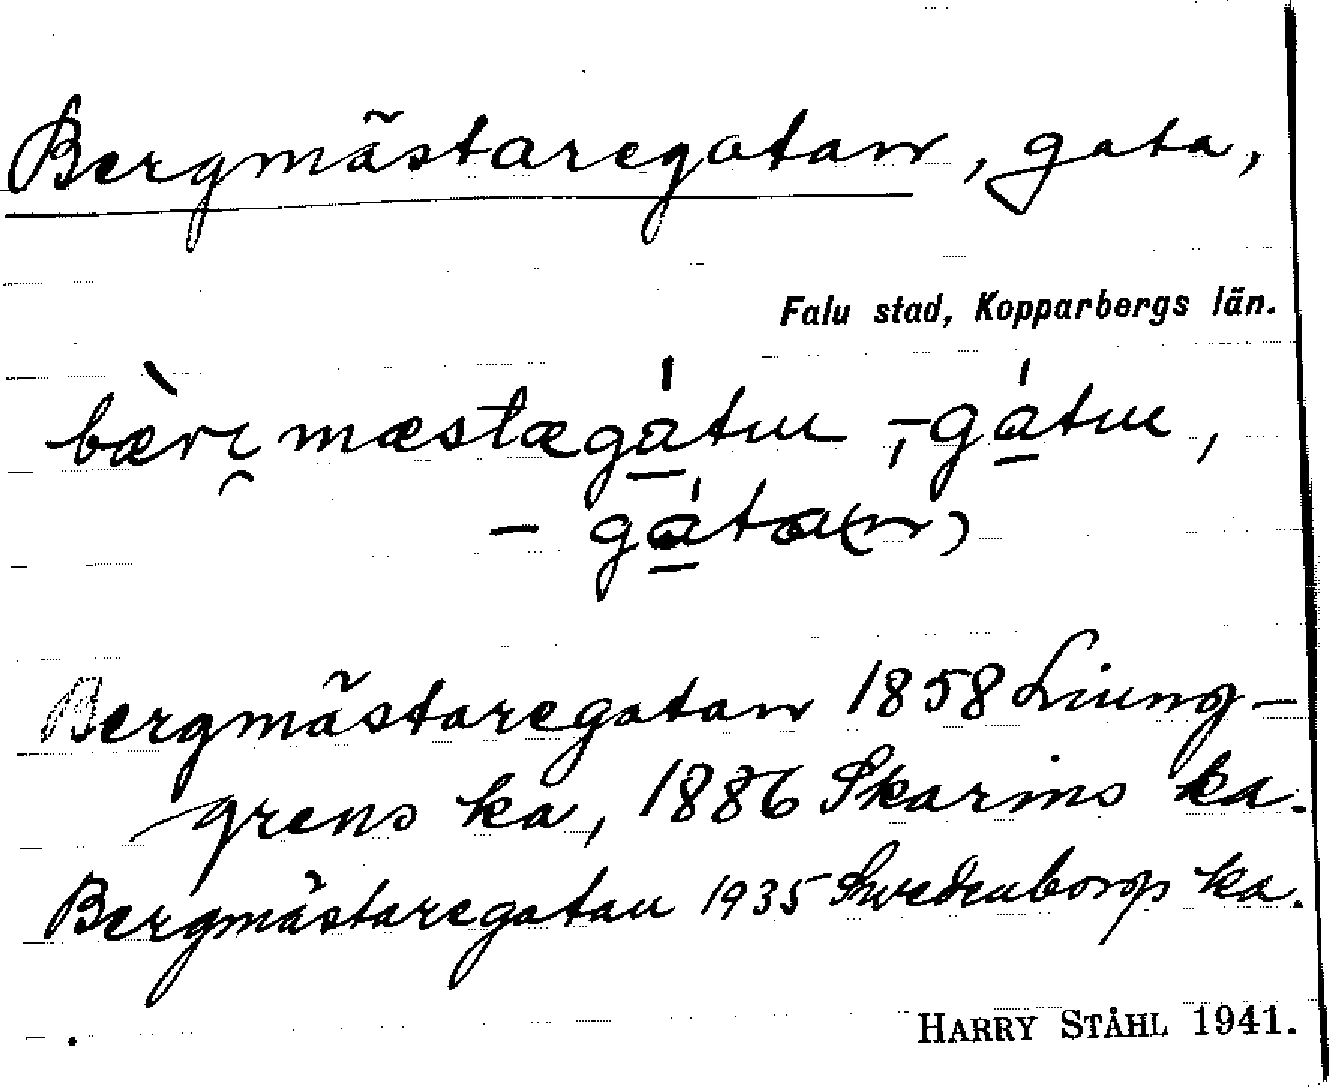 Bergmästaregatan, gata,
Falu stad, Kopparbergs län.
bæ̀ri̯mæstægá̱tɯ , -gá̱tɯ,
- gá̱ta(n)
Bergmästaregatan 1858 Liung-
grens ka, 1886 Skarins ka.
Bergmästaregatan 1935 Swedenborgs ka.
HARRY STÅHL 1941.